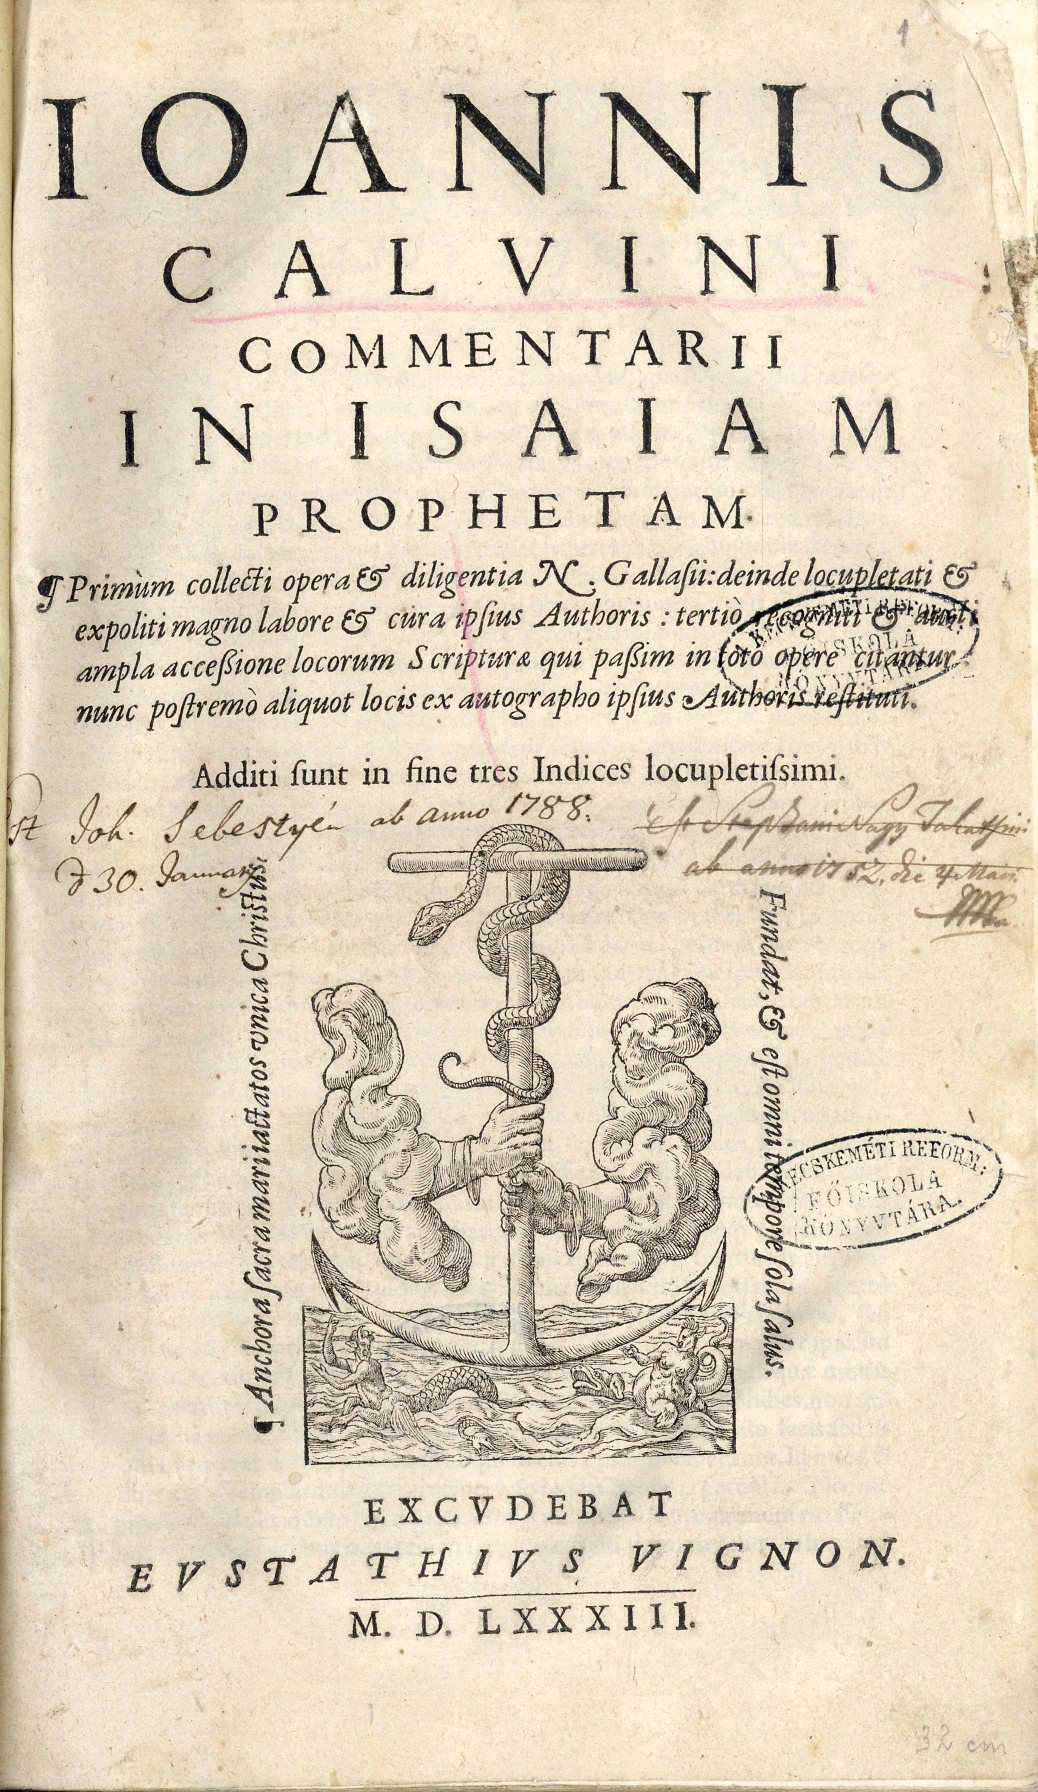 1
IOANNIS
CALVINI
COMMENTARII
IN ISAIAM
PROPHETAM.
¶ Primùm collecti opera & diligentia N. Gallaſii: deinde locupletati &
expoliti magno labore & cura ipſius Authoris : tertiò recogniti & aucti
ampla acceßione locorum Scripturæ qui paßim in toto opere citantur:
nunc poſtremò aliquot locis ex autographo ipſius Authoris reſtituti.
KECSKEMÉTI REFORM:
FŐISKOLA
KÖNYVTÁRA.
Additi ſunt in fine tres Indices locupletiſsimi.
Est Joh. Sebestyén ab anno 1788.
d 30. Januarij
Est Stephani Nagy
ab anno 1752. die 4 Maii
¶ Anchora ſacra mari iactatos vnica Chriſtus
Fundat, & eſt omni tempore ſola ſalus.
KECSKEMÉTI REFORM:
FŐISKOLA
KÖNYVTÁRA.
EXCVDEBAT
EVSTATHIVS VIGNON.
M. D. LXXXIII.
32 cm